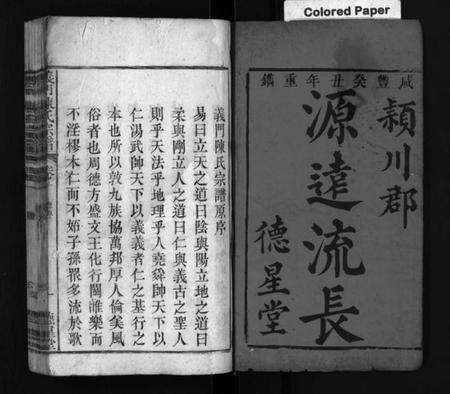 Colored Paper
咸豐癸丑年重鐫
潁川郡
源遠流長
德星堂
義門陳氏宗譜原序
易曰立天之道曰陰與陽立地之道曰
柔與剛立人之道曰仁與義古之聖人
則乎天法乎地理乎人堯舜帥天下以
仁湯武帥天下以義義者仁之基行之
本也所以敦九族協萬邦厚人倫美風
俗者也周德方盛文王化行關雎樂而
不淫樛木仁而不妬子孫眾多流於歌
義門陳氏宗譜